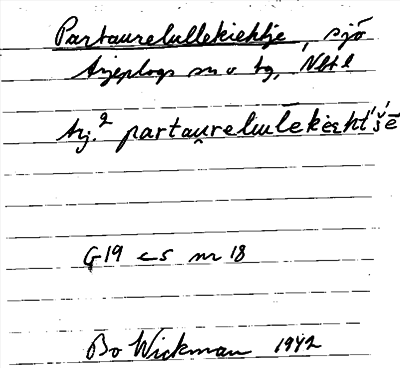 Partaurelullekiehtje, sjö
Arjeplogs sn o tg, Nbt l
Arj.² partau̯reliulēkiɛht'š'ē
G19 c5 nr 18
Bo Wickman 1942